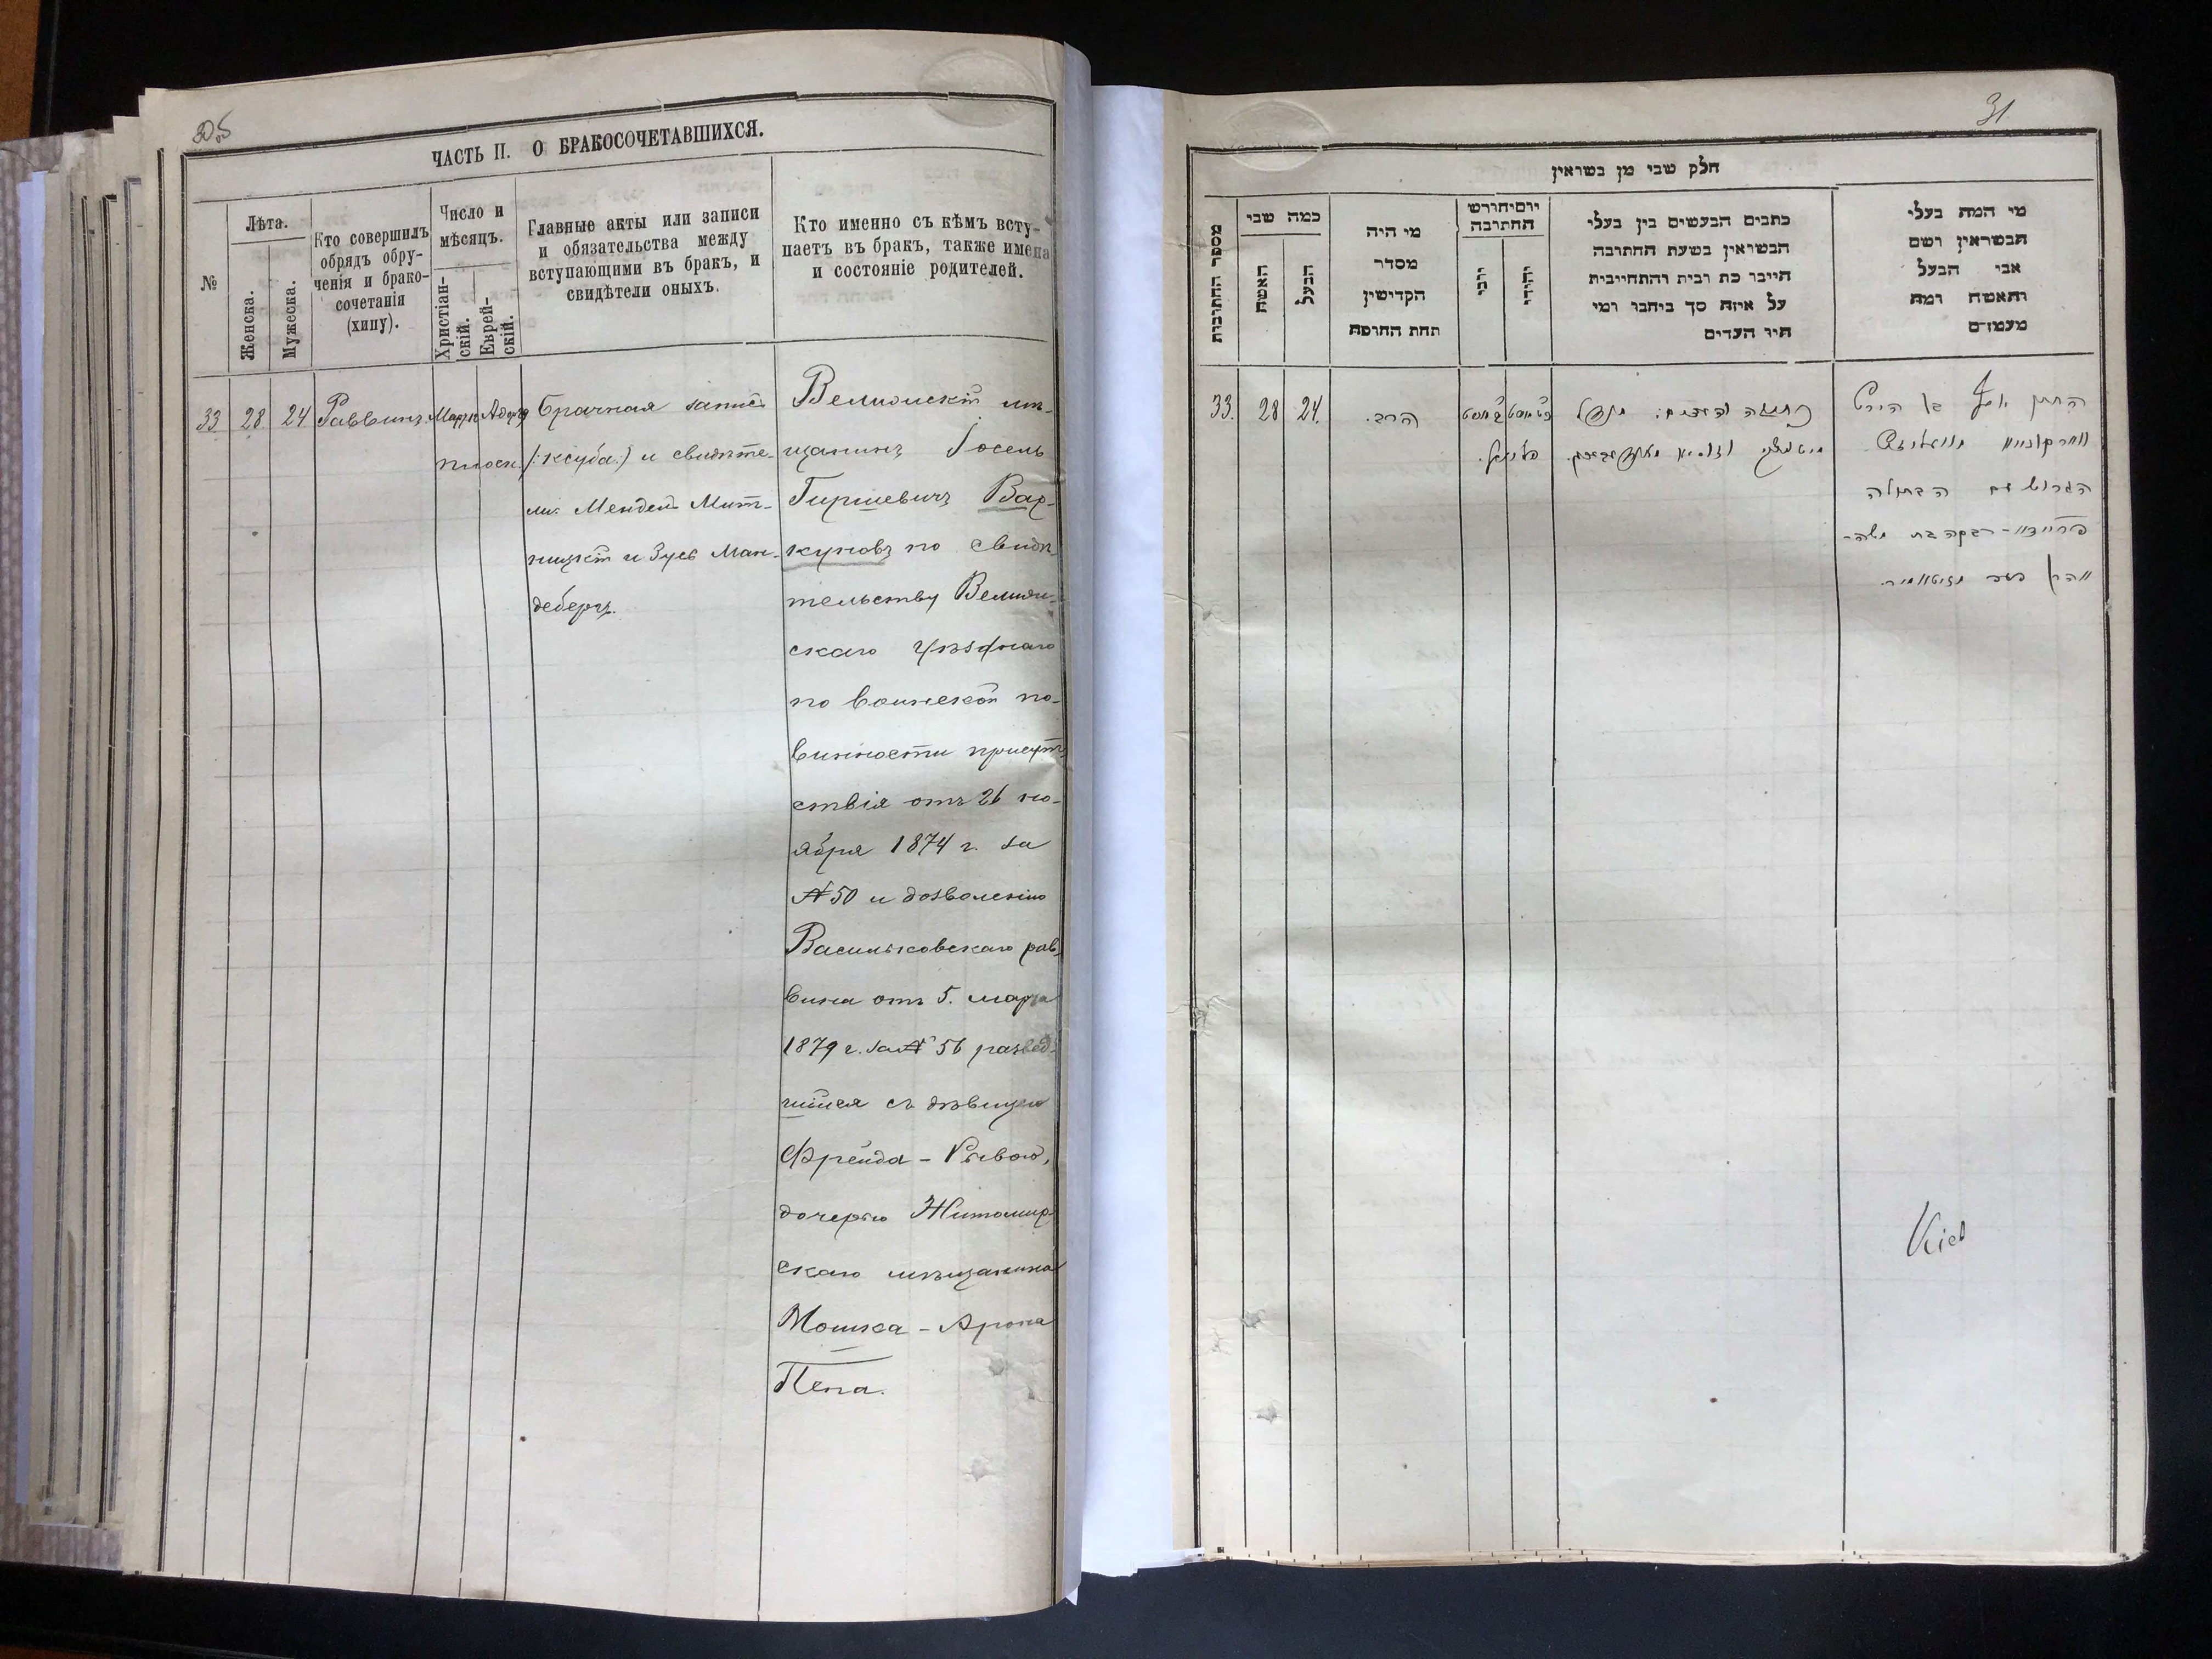 305
ЧАСТЬ II. О БРАКОСОЧЕТАВШИХСЯ.
№
Лѣта.
Женска.
Мужеска.
Кто совершилъ
обрядъ обру-
ченія и брако-
сочетанія
(хипу).
Число и
мѣсяцъ.
Христіан-
скій.
Еврей-
скій.
Главные акты или записи
и обязательства между
вступающими въ бракъ, и
свидѣтели оныхъ.
Кто именно съ кѣмъ всту-
паетъ въ бракъ, также имена
и состояніе родителей.
33
28
24
Раввинъ.
Брачная запись
(:ксуба:) и свидѣте-
ли: Мендель Мит-
ницкій и Зусь Ман-
дебергъ.
мѣ-
щанинъ Іосель
Гиршевичъ Вар-
куновъ по свидѣ-
тельству
скаго Уѣзднаго
по воинской по-
винности присут-
ствія отъ 26 но-
ября 1874 г. за
№ 50 и дозволенію
Васильковскаго рав-
вина отъ 5. марта
1879 г. за № 56 развед-
шійся съ дѣвицею
Фрейда-Рывою,
дочерью Житомир-
скаго мѣщанина
Мошка-Арона
Пепа.
31
חלק שבי מן בשואין
מספר החתובות
כמה שבי
האשה
הבעל
מי היה
מסדר
הקדישין
תחת החופה
יום וחודש
החתובה
יובי
יהודי
כתבים הבעשים בין בעלי
הבשואין בשעת החתובה
חייבו כת ובית והתחייבית
על איזה סך ביחבו ומי
היו העדים
מי המה בעלי
הבשואין ושם
אבי הבעל
והאשה ומה
מעמדם
33.
28
24.
הרב.
החתן יוסף בן הירש
הגרוש עם הבתולה
פריידא-רבקה בת משה-
אהרן פעפ מזיטאמיר.
Kiev